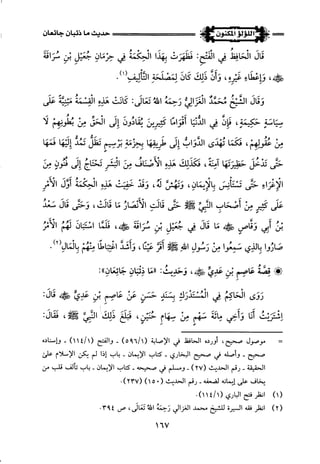 حديث ما ذئبان جائعان
اللؤلؤ المكنون
قَالَ الْحَافِظُ فِي الْفَتْحِ: فَظَهَرَتْ بِهَذَا الْحِكْمَةُ فِي حِرْمَانِ جُعَيْلِ بْنِ سُرَاقَةَ
، وَإِعْطَاءِ غَيْرِهِ، وَأَنَّ ذَلِكَ كَانَ لِمَصْلَحَةِ التَّأْلِيفِ(١).
وَقَالَ الشَّيْخُ مُحَمَّدٌ الْغَزَالِيُّ رَحِمَهُ اللهُ تَعَالَى: كَانَتْ هَذِهِ الْقِسْمَةُ مَبْنِيَّةً عَلَى
سِيَاسَةٍ حَكِيمَةٍ، فَإِنَّ فِي الدُّنْيَا أَقْوَامًا كَثِيرِينَ يُقَادُونَ إِلَى الْحَقِّ مِنْ بُطُونِهِمْ لَا
مِنْ عُقُولِهِمْ، فَكَمَا تُهْدَى الدَّوَابُّ إِلَى طَرِيقِهَا بِحِزْمَةِ بِرْسِيمٍ تَظَلُّ تَمُدُّ إِلَيْهَا فَمَهَا
حَتَّى تَدْخُلَ حَظِيرَتَهَا آمِنَةً، فَكَذَلِكَ هَذِهِ الْأَصْنَافُ مِنَ الْبَشَرِ تَحْتَاجُ إِلَى فُنُونٍ مِنَ
الْإِغْرَاءِ حَتَّى تَسْتَأْنِسَ بِالْإِيمَانِ، وَتَهُشَّ لَهُ، وَقَدْ خَفِيَتْ هَذِهِ الْحِكْمَةُ أَوَّلَ الْأَمْرِ
عَلَى كَثِيرٍ مِنْ أَصْحَابِ النَّبِيِّ ﷺ حَتَّى قَالَتِ الْأَنْصَارُ مَا قَالَتْ، وَحَتَّى قَالَ سَعْدُ
بْنُ أَبِي وَقَّاصٍ مَا قَالَ فِي جُعَيْلِ بْنِ سُرَاقَةَ ، فَلَمَّا اسْتَبَانَ لَهُمُ الْأَمْرُ
صَارُوا بِالَّذِي سَمِعُوا مِنْ رَسُولِ اللهِ ﷺ أَقَرَّ عَيْنًا، وَأَشَدَّ اغْتِبَاطًا مِنْهُمْ بِالْمَالِ(٢).
قِصَّةُ عَاصِمِ بْنِ عَدِيٍّ ، وَحَدِيثُ: «مَا ذِئْبَانِ جَائِعَانِ»:
رَوَى الْحَاكِمُ فِي الْمُسْتَدْرَكِ بِسَنَدٍ حَسَنٍ عَنْ عَاصِمِ بْنِ عَدِيٍّ قَالَ:
اشْتَرَيْتُ أَنَا وَأَخِي مِائَةَ سَهْمٍ مِنْ سِهَامِ حُنَيْنٍ، فَبَلَغَ ذَلِكَ النَّبِيَّ ﷺ، فَقَالَ:
= موصول صحيح، أورده الحافظ في الإصابة (٥٩٦/١) - والفتح (١١٤/١) - وإسناده
صحيح - وأصله في صحيح البخاري - كتاب الإيمان - باب إذا لم يكن الإسلام على
الحقيقة - رقم الحديث (٢٧) - ومسلم في صحيحه - كتاب الإيمان - باب تألف قلب من
يخاف على إيمانه لضعفه - رقم الحديث (١٥٠) (٢٣٧).
(١) انظر فتح الباري (١١٤/١).
(٢) انظر فقه السيرة للشيخ محمد الغزالي رَحِمَهُ اللهُ تَعَالَى، ص ٣٩٤.
١٦٧